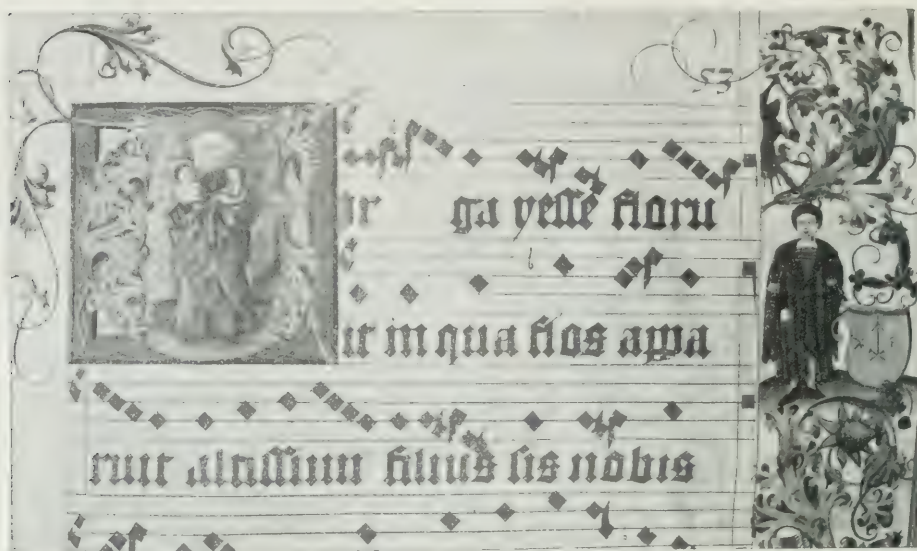 Vir ga yesse floru
it in qua flos appa
ruit altissimi filius sis nobis